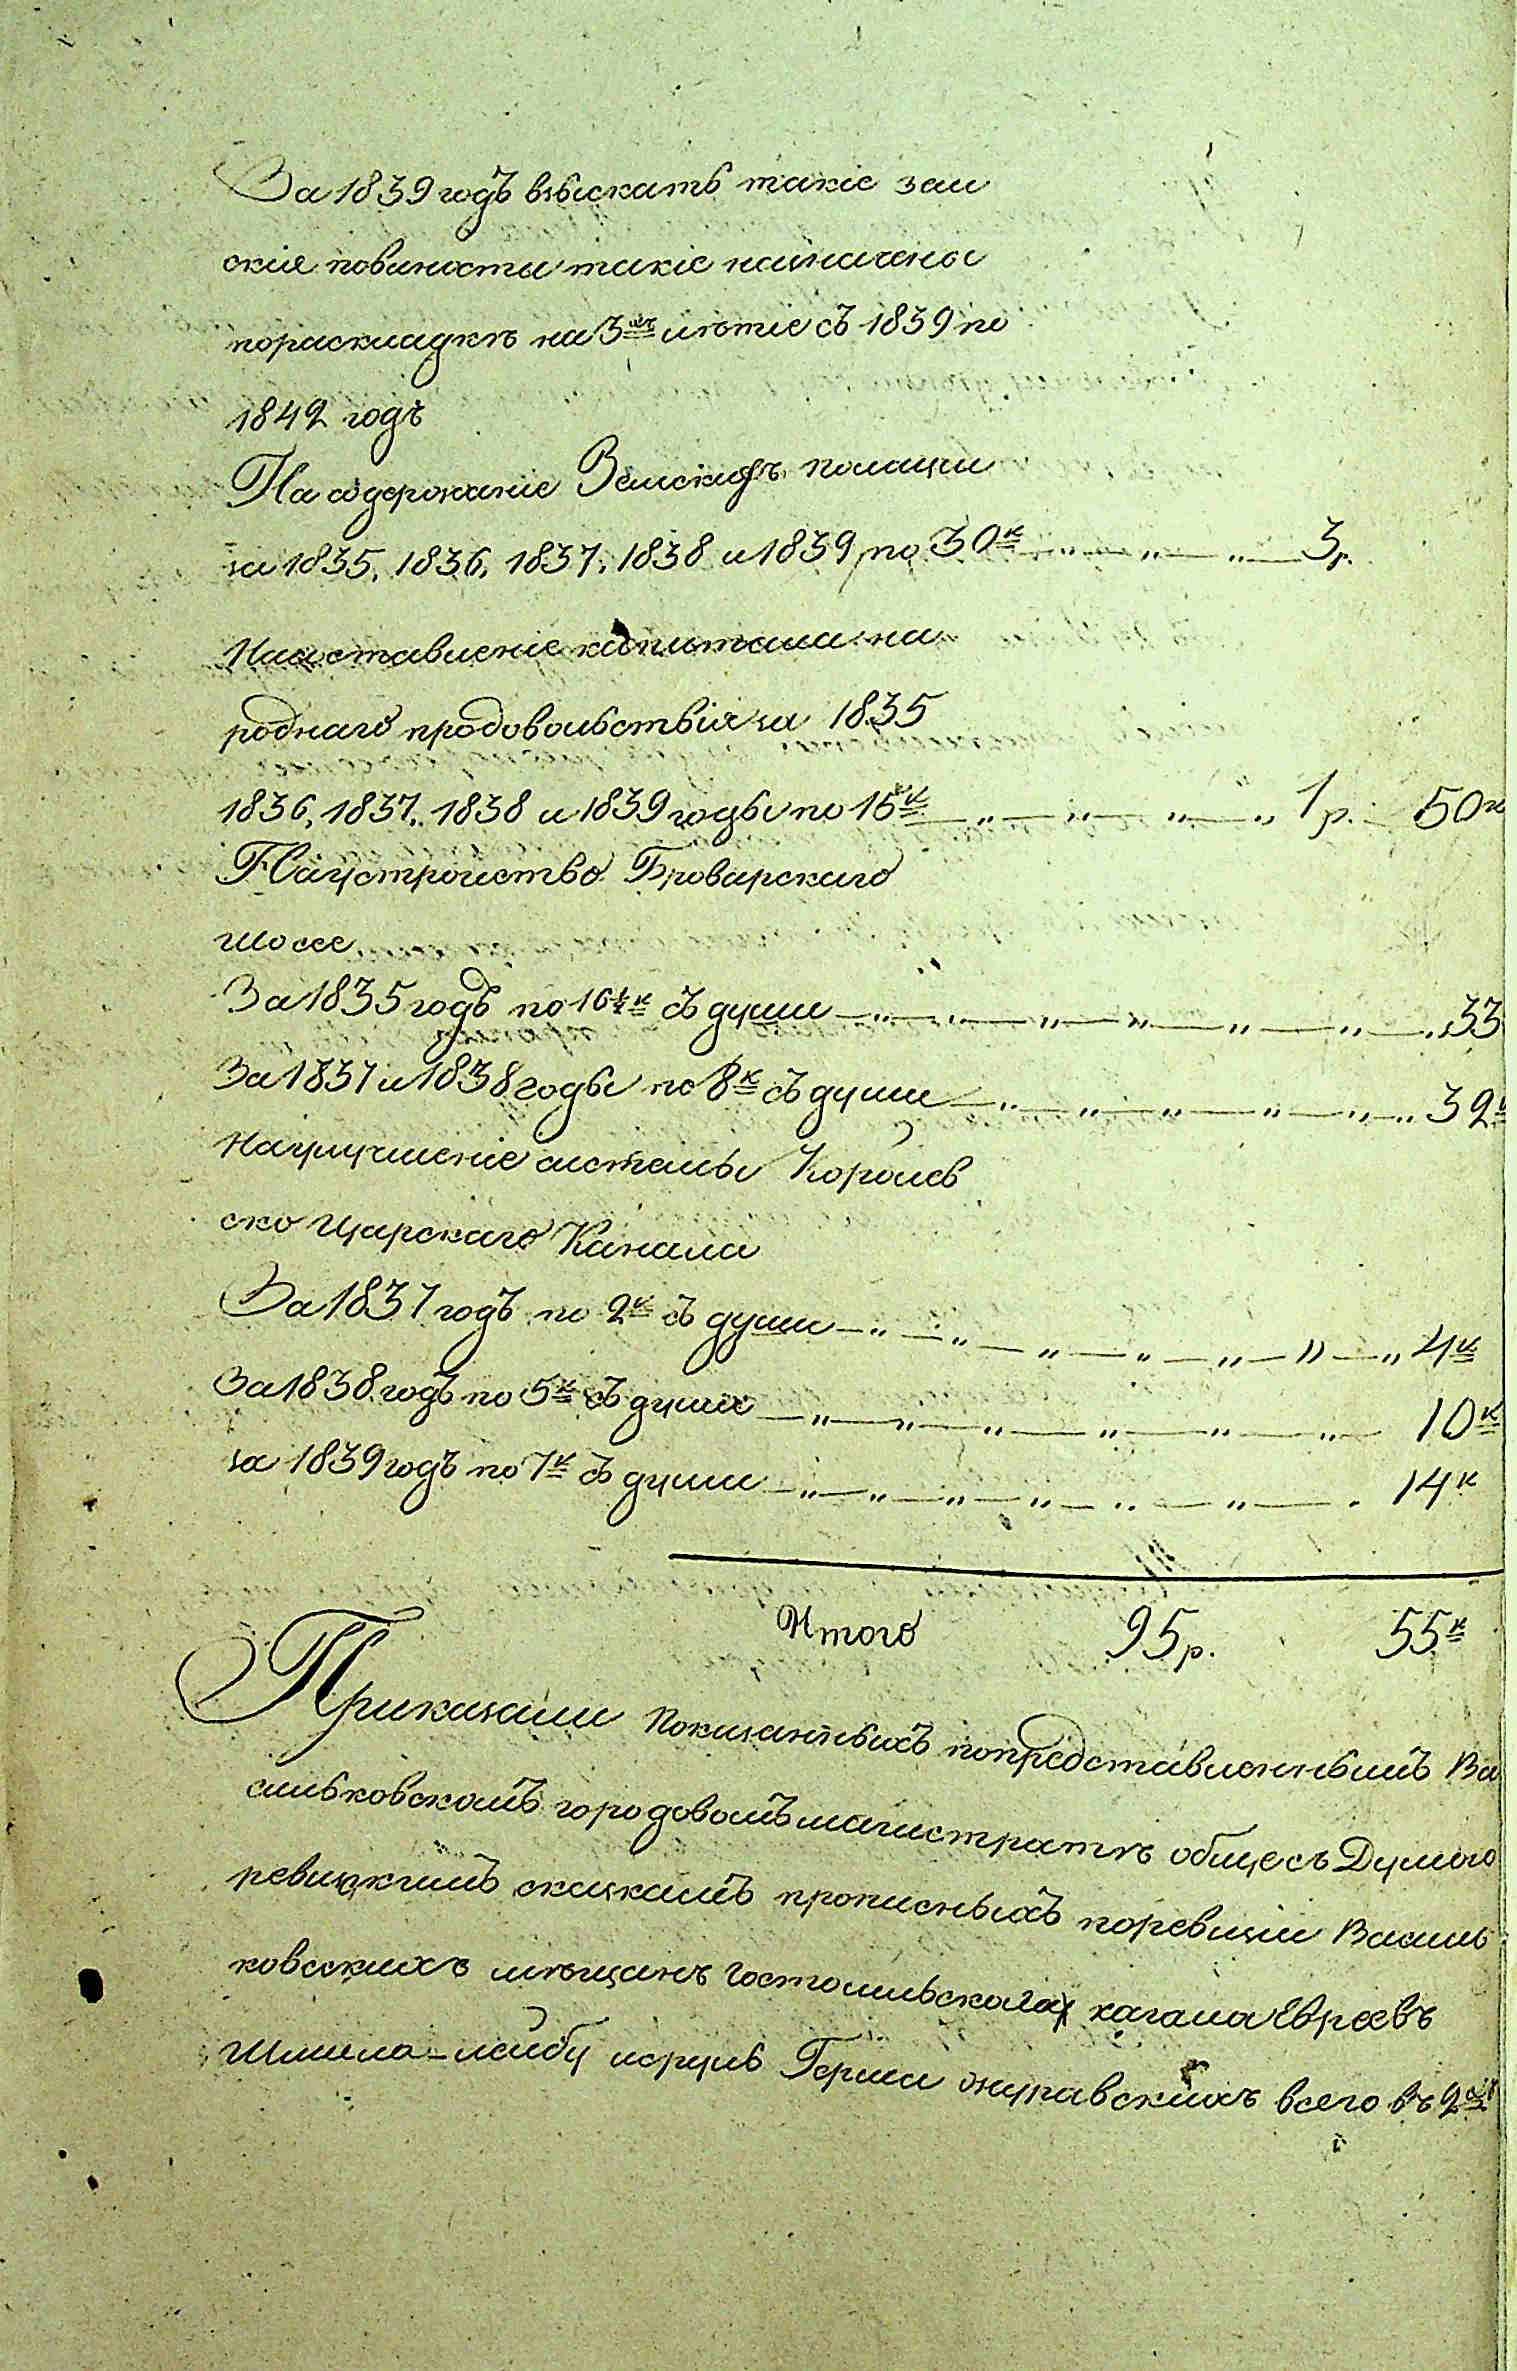 За 1839 годъ взыскать такіе зем
скіе повиности такіе назначены
пораскладкѣ на 3хъ лѣтіе съ 1839 по
1842 годъ
На содержаніе Земскихъ полаціи
за 1835, 1836, 1837, 1838 и 1839, по 30к — " — " — " — 3р.
На составленіе капитала на
роднаго продовольствія за 1835
1836, 1837, 1838 и 1839 годы по 15к — " — " — " — " 1р. 50к
На устроиство Броварскаго
шоссе
За 1835 годъ по 16½к съ души — " — " — " — " — " — " — " 33
За 1837 и 1838 годы по 8к съ души — " — " — " — " — " — " 32к
На улучшеніе системы Королев
ско Царскаго Канала
За 1837 годъ по 2к съ души — " — " — " — " — " — " — " 4к
За 1838 годъ по 5к съ души — " — " — " — " — " — " — 10к
за 1839 годъ по 7к съ души — " — " — " — " — " — " — 14к
Итого 95р. 55к
Приказали показанныхъ попредставленнымъ Ва
сильковскомъ городовомъ магистратѣ обще съ Думою
ревизкимъ сказкамъ прописныхъ поревизіи Василь
ковскихъ мѣщанъ Гостомльскола кагала Евреевъ
Шмила-лейбу Герша журавскихъ всего въ 2хъ